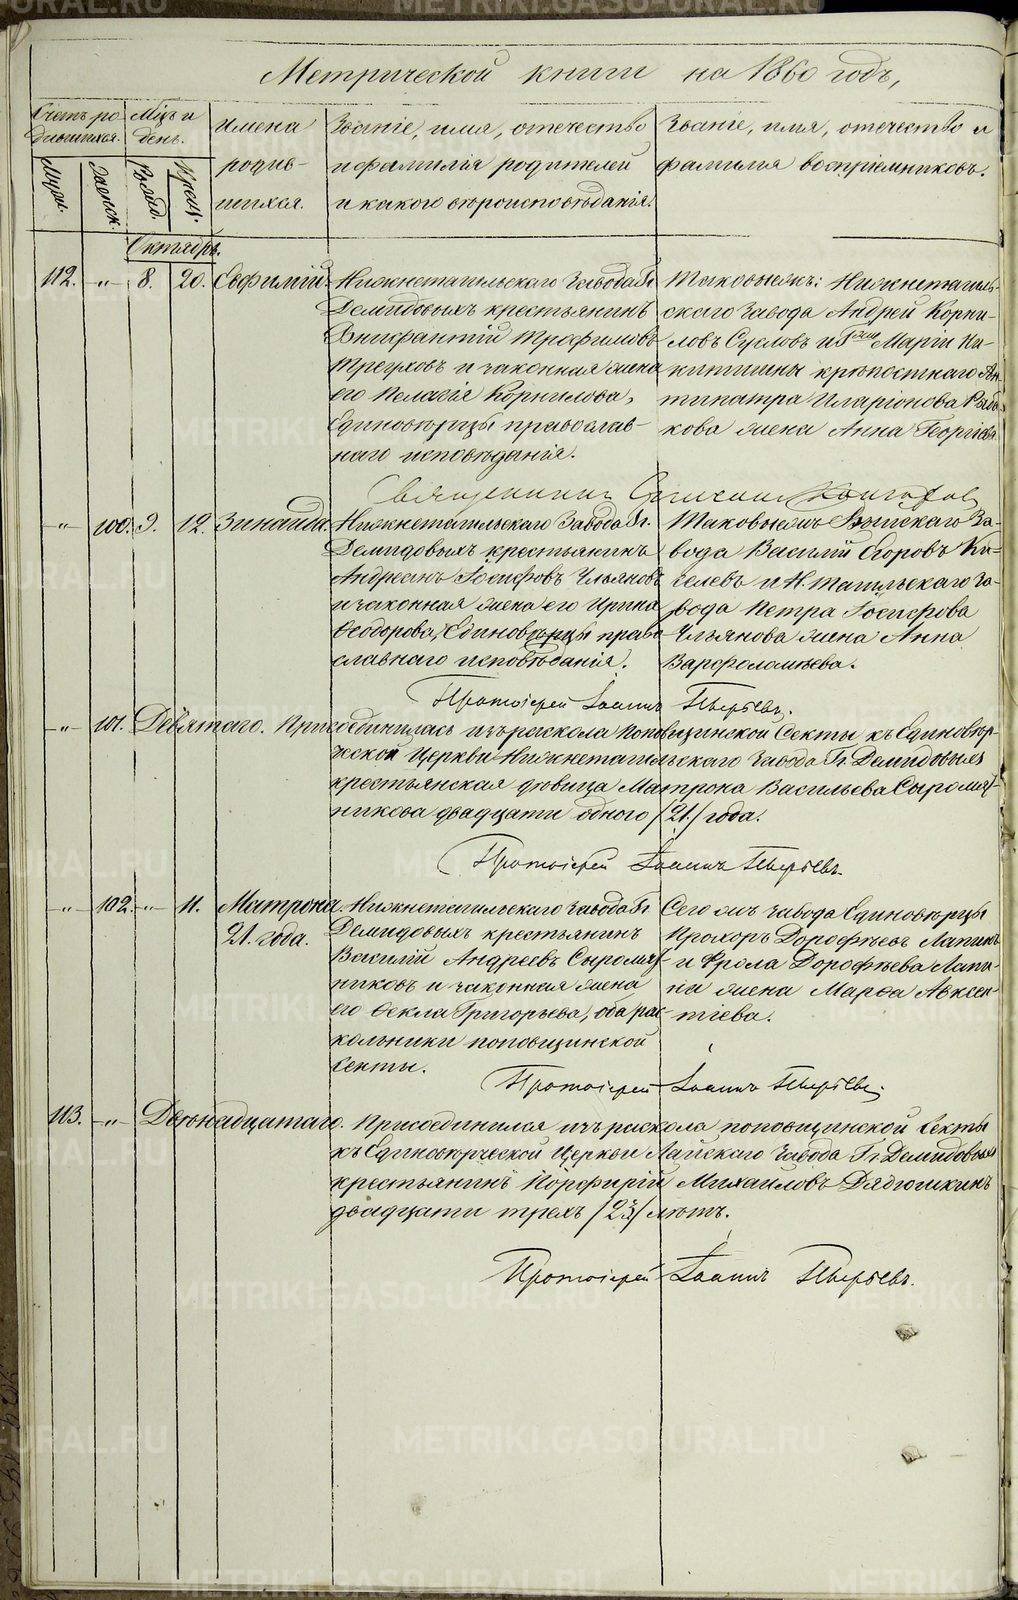 METRIKI.GASO-URAL.RU
Метрической книги на 1860 годъ,
Счетъ родившихся.
Мѣсъ и день.
Имена родившихся.
Званіе, имя, отечество и фамилія родителей и какого вѣроисповѣданія.
Званіе, имя, отечество и фамилія воспріемниковъ.
Мужс.
Женск.
Рожд.
Крещ.
Октябрь.
112. -"- 8. 20. Евфимій.
Нижнетагильскаго завода Гг.
Демидовыхъ крестьянинъ
Трафимовъ
и законная жена
его Пелагія Корнилова,
Единовѣрцы православ-
наго исповѣданія.
Таковыежъ: Нижнетагиль-
скаго завода Андрей Корни-
ловъ Сусловъ и Маріи Ни-
китины крѣпостнаго Ан-
типатра Иларіонова
кова жена Анна Георгіева.
Священникъ
-"- 100. 9. 12. Зинаида.
Нижнетагильскаго завода Гг.
Демидовыхъ крестьянинъ
Андреанъ Іосифовъ Ульяновъ
и законная жена его Ирина
Ѳеодорова, Единовѣрцы право-
славнаго исповѣданія.
Таковыежъ за-
вода Василій Егоровъ Ки-
селевъ и Н. Тагильскаго за-
вода Петра Іосифова
Ульянова жена Анна
Варфоломѣева.
Протоіерей Іоаннъ Пырьевъ.
-"- 101. Девятаго. Присоединилась изъ раскола поповщинской Секты къ Единовѣр-
ческой Церкви Нижнетагильскаго завода Гг. Демидовыхъ
крестьянская дѣвица Матрона Васильева Сыромят-
никова двадцати одного /21/ года.
Протоіерей Іоаннъ Пырьевъ.
-"- 102. -"- 11. Матрона.
21. года.
Нижнетагильскаго завода Гг.
Демидовыхъ крестьянинъ
Василій Андреевъ Сыромят-
никовъ и законная жена
его Ѳекла Григорьева, оба рас-
кольники поповщинской
секты.
Сего жъ завода Единовѣрцы
Прохоръ Дорофѣевъ Лапинъ
и Фрола Дорофѣева Лапи-
на жена Марѳа Авксен-
тіева.
Протоіерей Іоаннъ Пырьевъ.
113. -"- Двѣнадцатаго. Присоединился изъ раскола поповщинской секты
къ Единовѣрческой Церкви Лайскаго завода Гг. Демидовыхъ
крестьянинъ Порфирій Михаиловъ Дядюшкинъ
двадцати трехъ /23/ лѣтъ.
Протоіерей Іоаннъ Пырьевъ.